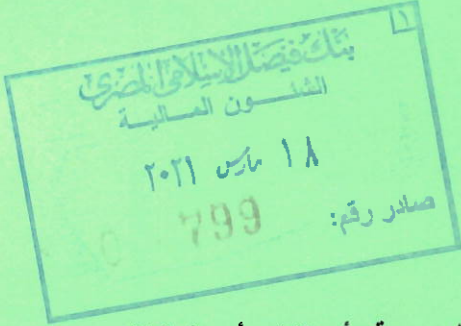 ١
بنك فيصل الإسلامي المصري
الشئون المالية
١٨ مارس ٢٠٢١
صادر رقم: 799 0